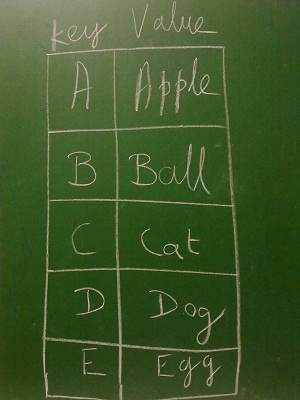 Key Value
A Apple
B Ball
C Cat
D Dog
E Egg